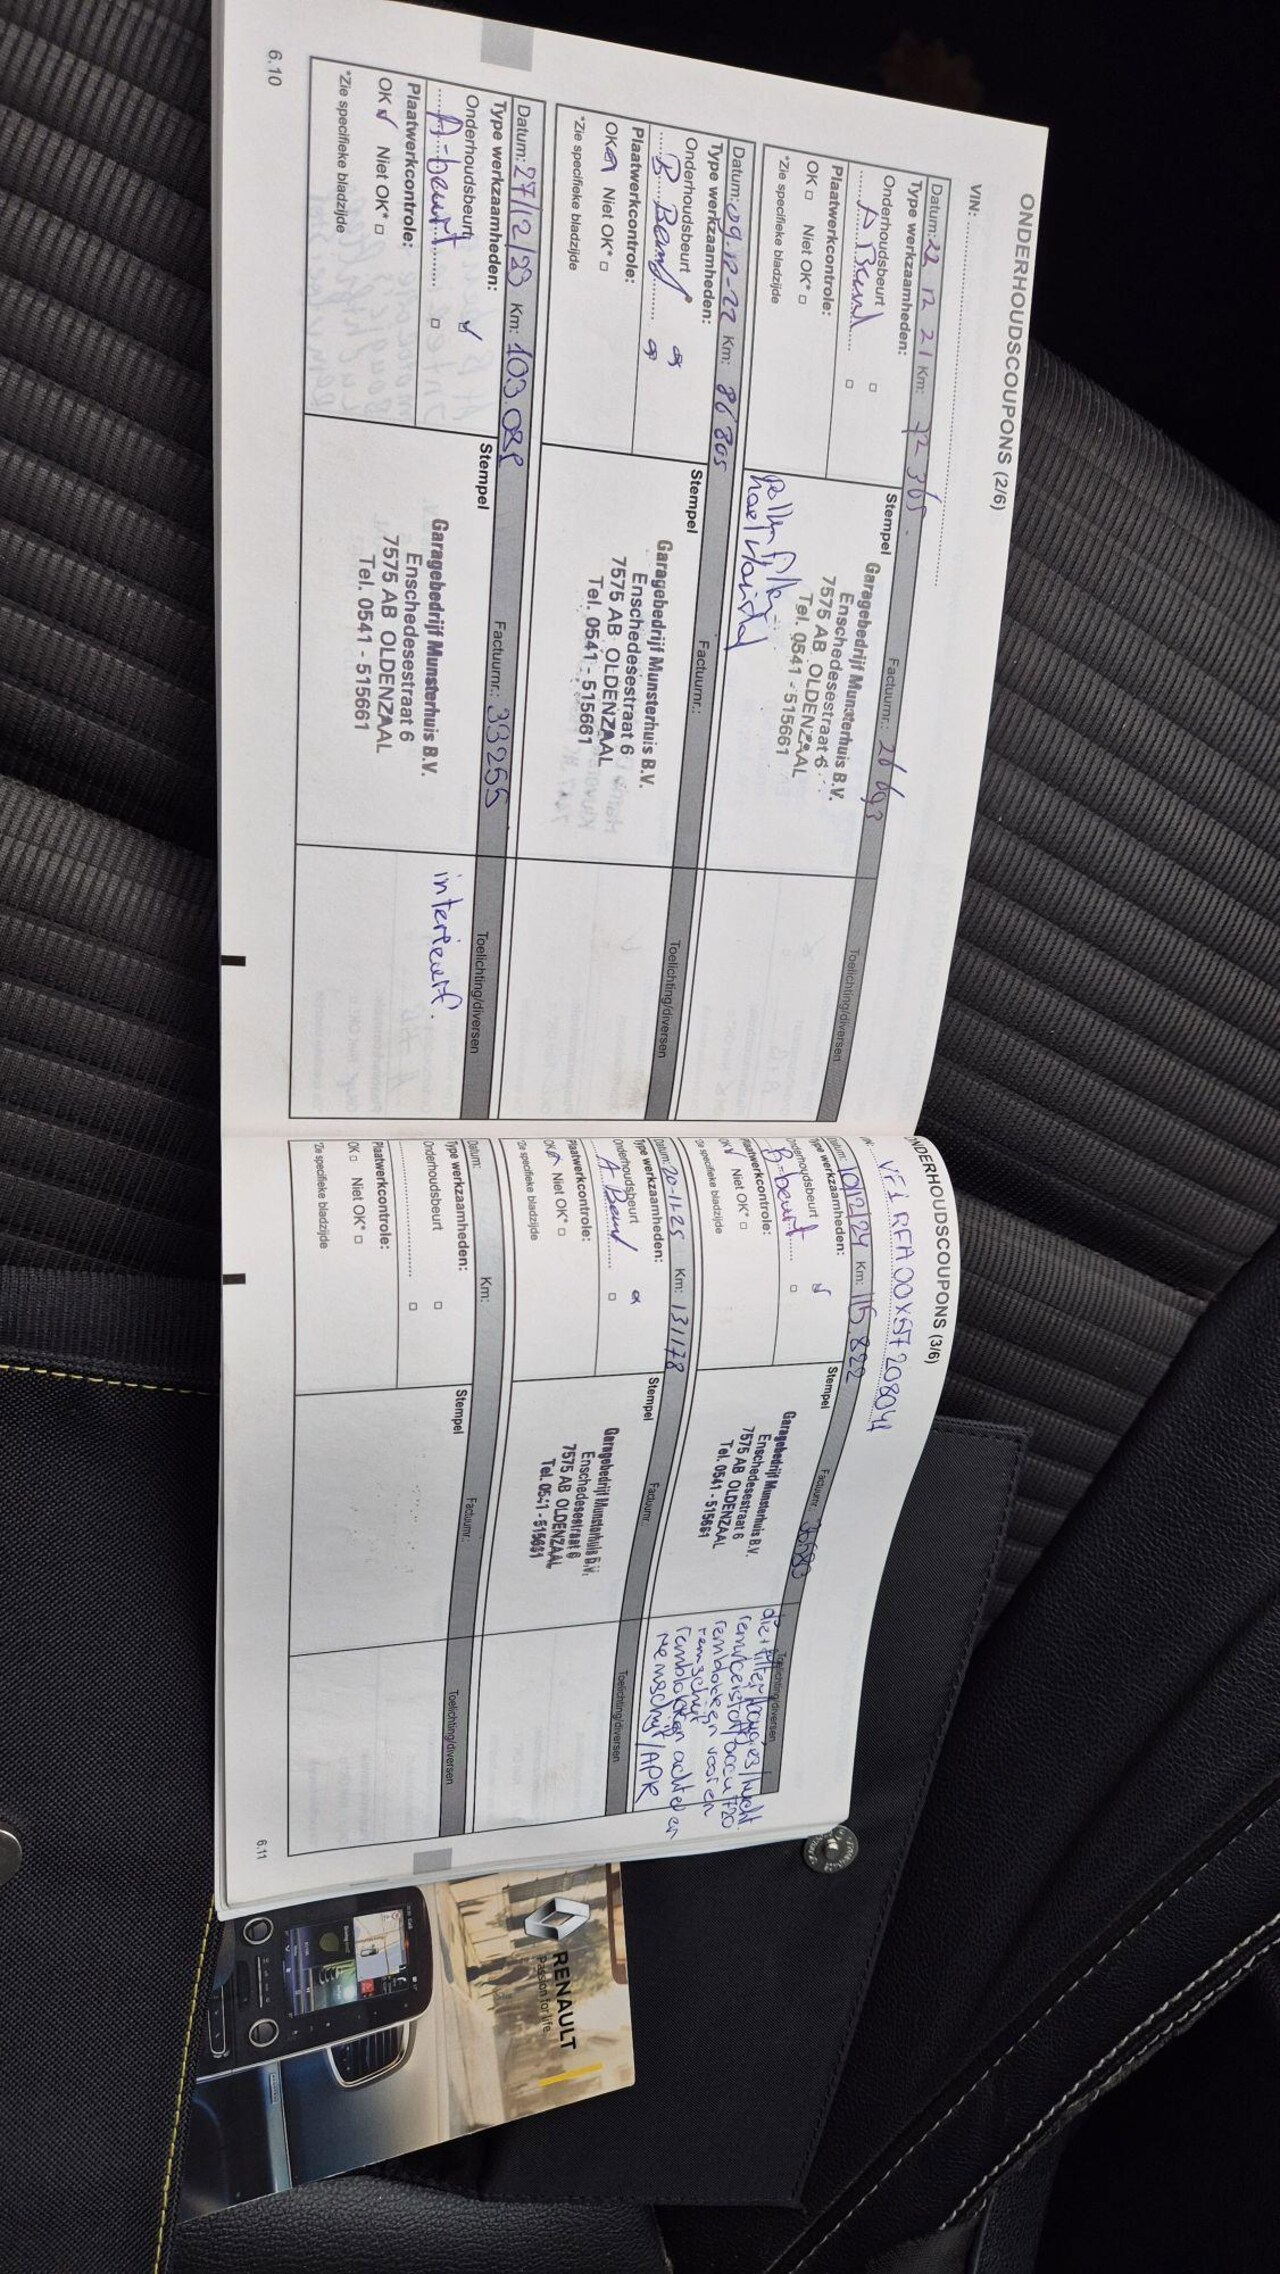 ONDERHOUDSCOUPONS (2/6)
VIN:
Datum: 22 12 21 Km: 72 365 Factuurnr.:
Type werkzaamheden: Stempel Toelichting/diversen
Onderhoudsbeurt
A Beurt
Plaatwerkcontrole:
OK Niet OK*
*Zie specifieke bladzijde
Garagebedrijf Munsterhuis B.V.
Enschedesestraat 6
7575 AB OLDENZAAL
Tel. 0541 - 515661
Datum: 09-12-22 Km: 86 805 Factuurnr.:
Type werkzaamheden: Stempel Toelichting/diversen
Onderhoudsbeurt
B Beurt
Plaatwerkcontrole:
OK Niet OK*
*Zie specifieke bladzijde
Garagebedrijf Munsterhuis B.V.
Enschedesestraat 6
7575 AB OLDENZAAL
Tel. 0541 - 515661
Datum: 27/12/23 Km: Factuurnr.: 33255
Type werkzaamheden: Stempel Toelichting/diversen
Onderhoudsbeurt
A-beurt
Plaatwerkcontrole:
OK Niet OK*
*Zie specifieke bladzijde
Garagebedrijf Munsterhuis B.V.
Enschedesestraat 6
7575 AB OLDENZAAL
Tel. 0541 - 515661
interieurf.
6.10
ONDERHOUDSCOUPONS (3/6)
VF1RFA00X57208041
Datum: 10/12/24 Km: 115.822 Factuurnr.:
Type werkzaamheden: Stempel Toelichting/diversen
Onderhoudsbeurt
B-beurt
Plaatwerkcontrole:
OK Niet OK*
*Zie specifieke bladzijde
Garagebedrijf Munsterhuis B.V.
Enschedesestraat 6
7575 AB OLDENZAAL
Tel. 0541 - 515661
remblokken voor en
remschijf
remblokken achter en
remschijf/APK
Datum: 20-11-25 Km: 131178 Factuurnr.:
Type werkzaamheden: Stempel Toelichting/diversen
Onderhoudsbeurt
A Beurt
Plaatwerkcontrole:
OK Niet OK*
*Zie specifieke bladzijde
Garagebedrijf Munsterhuis B.V.
Enschedesestraat 6
7575 AB OLDENZAAL
Tel. 0541 - 515661
Datum: Km: Factuurnr.:
Type werkzaamheden: Stempel Toelichting/diversen
Onderhoudsbeurt
Plaatwerkcontrole:
OK Niet OK*
*Zie specifieke bladzijde
6.11
RENAULT
Passion for life